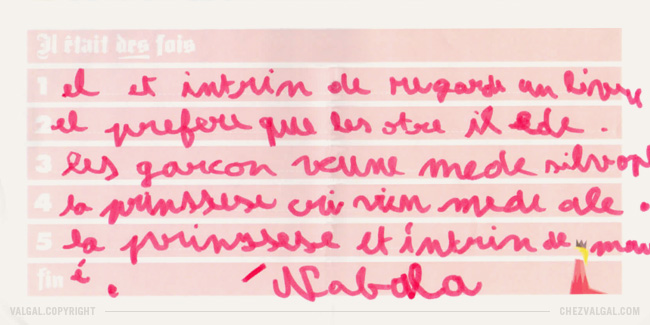 Il était des fois
1 el et intrin de regarde un livre
2 el prefere que les otre il ede .
3 les garcon veune mede silvopl
4 la prinssese cri vien mede ale .
5 la prinssese et intrin de mou
fin é .
Nabola
VALGAL.COPYRIGHT
CHEZVALGAL.COM